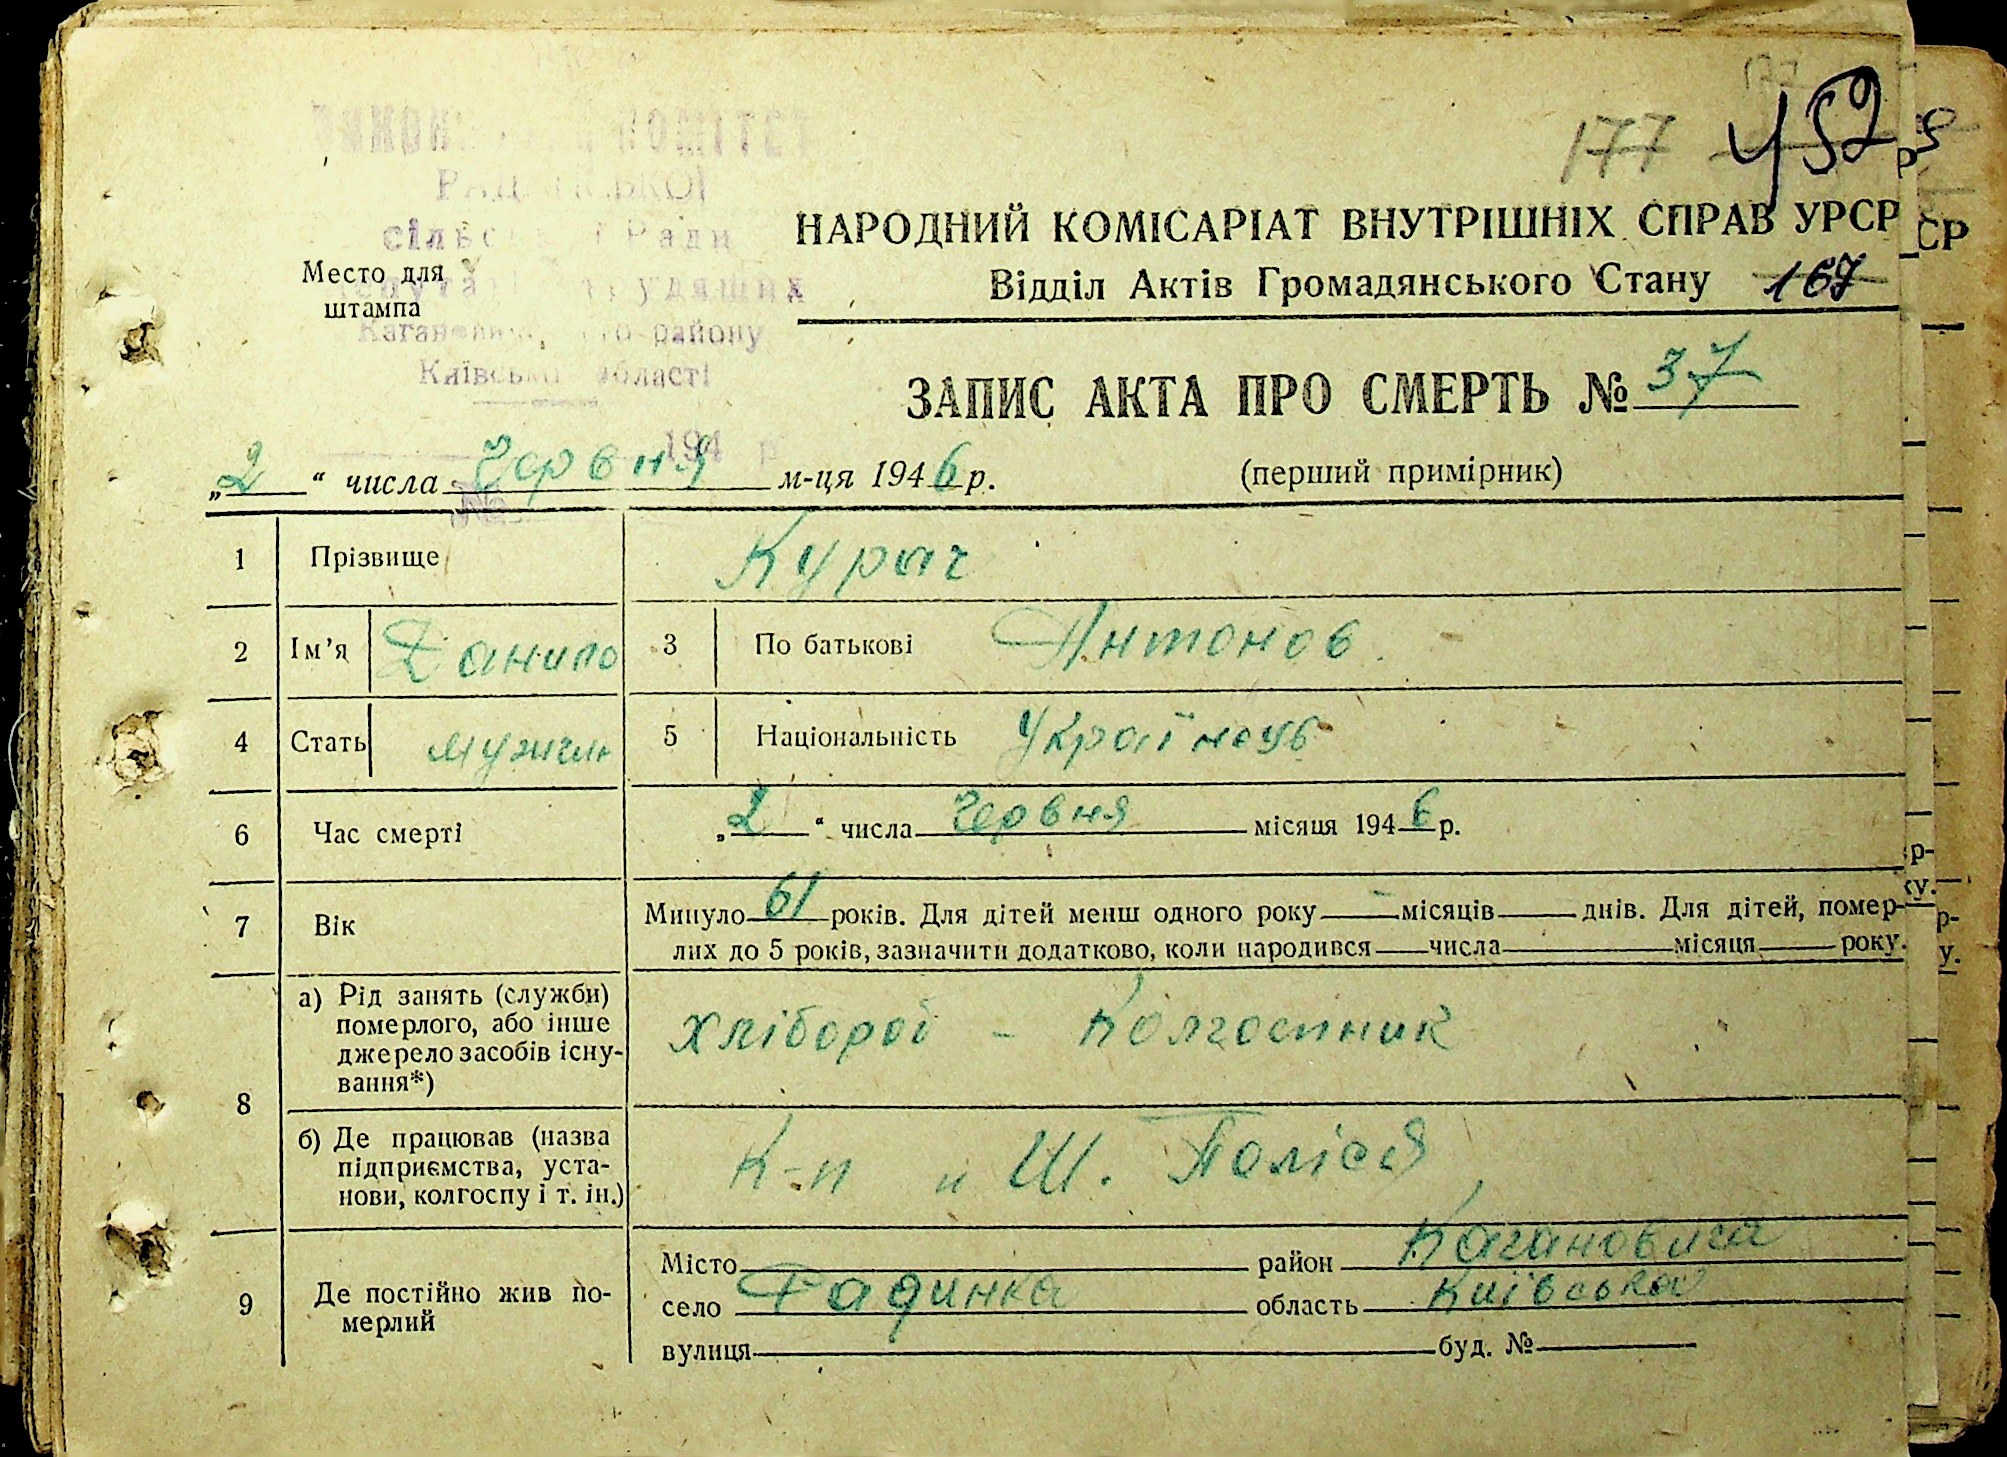 177 452
КОМІТЕТ
сільської Ради
районy
Київської області
194 р
№
Место для
штампа
НАРОДНИЙ КОМІСАРІАТ ВНУТРІШНІХ СПРАВ УРСР
СР
Відділ Актів Громадянського Стану 167
ЗАПИС АКТА ПРО СМЕРТЬ № 37
„2“ числа Червня м-ця 1946 р. (перший примірник)
1 Прізвище Курач
2 Ім’я Данило 3 По батькові Антонов.
4 Стать мужчин 5 Національність Українець
6 Час смерті „2“ числа Червня місяця 1946 р.
7 Вік Минуло 61 років. Для дітей менш одного року — місяців — днів. Для дітей, помер-
лих до 5 років, зазначити додатково, коли народився — числа — місяця — року.
8 а) Рід занять (служби)
померлого, або інше
джерело засобів існу-
вання*)
хлібороб - Колгоспник
б) Де працював (назва
підприємства, уста-
нови, колгоспу і т. ін.)
К-п и Ш. Полісся
9 Де постійно жив по-
мерлий
Місто район Кагановича
село Радинка область Київська
вулиця буд. №